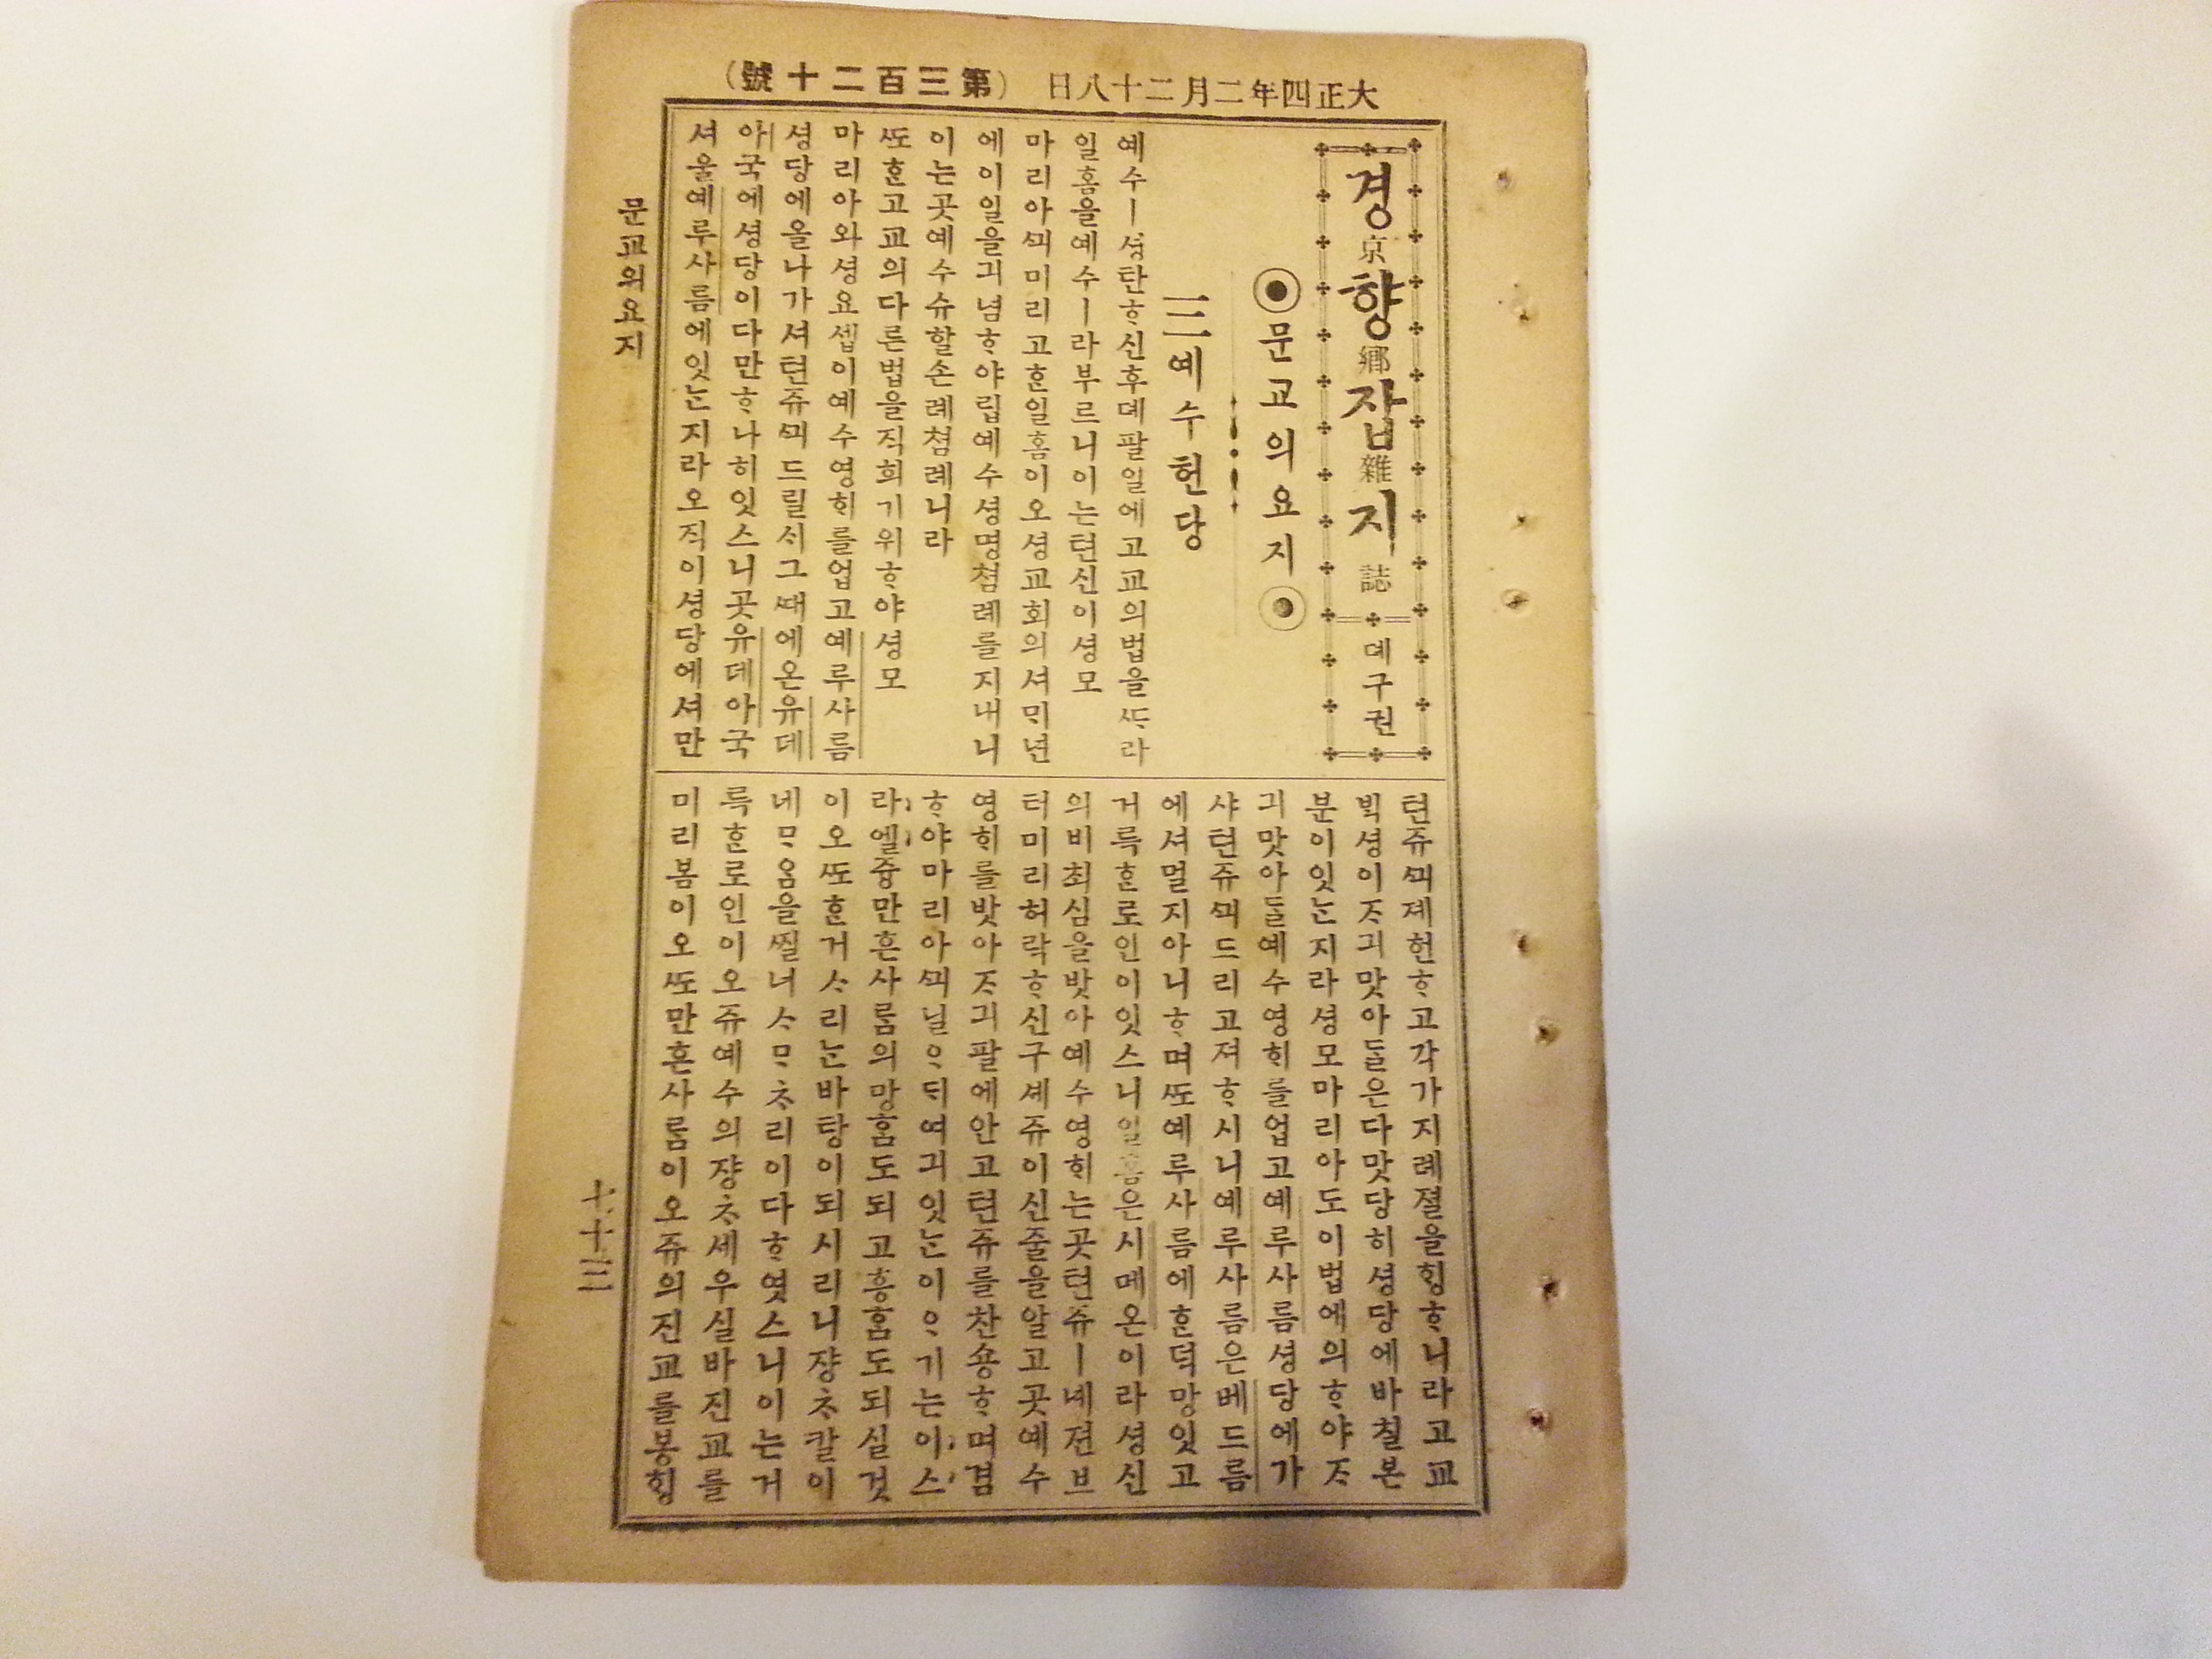 大正四年二月二十八日 (第三百二十號)
경京향鄕잡雜지誌 뎨구권
◉문교의요지◉
三 예수헌당
예수ㅣ셩탄ᄒᆞ신후뎨팔일에고교의법을ᄯᆞ라
일홈을예수ㅣ라부르니이는텬신이셩모
마리아ᄭᅴ미리고ᄒᆞᆫ일홈이오셩교회의셔ᄆᆡ년
에이일을긔념ᄒᆞ야립예수셩명쳠례를지내니
이는곳예수슈할손례쳠례니라
ᄯᅩᄒᆞᆫ고교의다른법을직희기위ᄒᆞ야셩모
마리아와셩요셉이예수영ᄒᆡ를업고예루사름
셩당에올나가셔텬쥬ᄭᅴ드릴ᄉᆡ그ᄯᅢ에온유데
아국에셩당이다만ᄒᆞ나히잇스니곳유데아국
셔울예루사름에잇ᄂᆞᆫ지라오직이셩당에셔만
텬쥬ᄭᅴ졔헌ᄒᆞ고각가지례졀을ᄒᆡᆼᄒᆞ니라고교
ᄇᆡᆨ셩이ᄌᆞ긔맛아ᄃᆞᆯ은다맛당히셩당에바칠본
분이잇ᄂᆞᆫ지라셩모마리아도이법에의ᄒᆞ야ᄌᆞ
긔맛아ᄃᆞᆯ예수영ᄒᆡ를업고예루사름셩당에가
샤텬쥬ᄭᅴ드리고져ᄒᆞ시니예루사름은베드름
에셔멀지아니ᄒᆞ며ᄯᅩ예루사름에ᄒᆞᆫ덕망잇고
거륵ᄒᆞᆫ로인이잇스니일홈은시메온이라셩신
의비최심을밧아예수영ᄒᆡ는곳텬쥬ㅣ녜젼브
터미리허락ᄒᆞ신구셰쥬이신줄을알고곳예수
영ᄒᆡ를밧아ᄌᆞ긔팔에안고텬쥬를찬숑ᄒᆞ며겸
ᄒᆞ야마리아ᄭᅴ닐ᄋᆞᄃᆡ여긔잇ᄂᆞᆫ이ᄋᆞ기는이스
라엘즁만흔사ᄅᆞᆷ의망홈도되고흥홈도되실것
이오ᄯᅩᄒᆞᆫ거ᄉᆞ리ᄂᆞᆫ바탕이되시리니쟝ᄎᆞ칼이
네ᄆᆞᄋᆞᆷ을ᄶᅵᆯ너ᄉᆞᄆᆞᄎᆞ리이다ᄒᆞ엿스니이는거
륵ᄒᆞᆫ로인이오쥬예수의쟝ᄎᆞ세우실바진교를
미리봄이오ᄯᅩ만흔사ᄅᆞᆷ이오쥬의진교를봉ᄒᆡᆼ
문교의요지
七十三